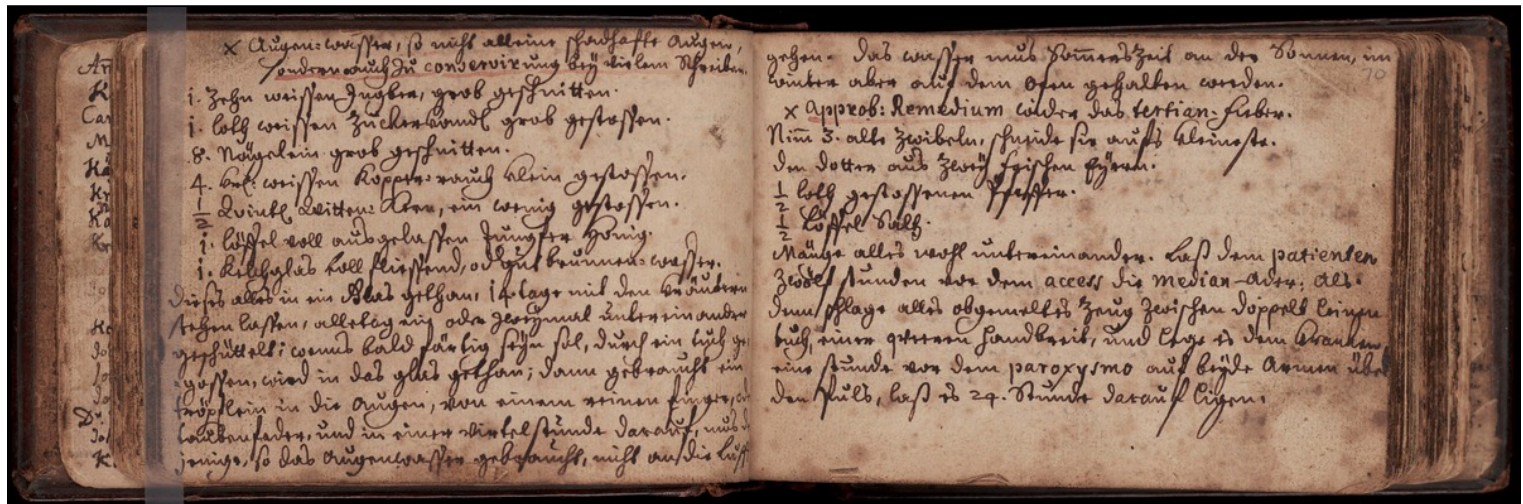 × Augen-wasser, so nicht alleine schadhaffte Augen,
sondern auch zu conservirung bey vielem Schreiben.
1. Zehn weissen Ingber, grob geschnitten.
1. loth weissen Zuckerkandl grob gestossen.
8. Nägelein grob geschnitten.
4. weissen Kopper-rauch klein gestossen.
½ Quintl Quitten-Kern, ein wenig gestossen.
1. löffel voll ausgelassen Jungfer Hönig.
1. Kelchglas voll fliessend, od. gut brunnen-wasser.
Dieses alles in ein Glas gethan, 14. tage mit den Kräutern
stehen lassen, alletag ein oder zweymal untereinander
geschüttelt; wenns bald färtig seyn sol, durch ein tuch ge-
gossen, wird in das glas gethan; dann gebraucht ein
tröpflein in die Augen, von einem reinen finger, od
taubenfeder, und in einer viertelstunde darauf, mus d
jenige, so das Augenwasser gebraucht, nicht an die Lufft
An
K
Car
M
Kr
Ko
K
gehen. Das wasser mus Sommerszeit an der Sonnen, im
winter aber auf dem Ofen gehalten werden.
70
× Approb: Remedium wider das tertian-fieber.
Nim̄ 3. alte Zwibeln, schneide sie aufs kleineste.
den dotter aus zwey frischen Eyern.
½ loth gestossenen Pfeffer.
½ Löffel Saltz.
Mänge alles wohl untereinander. Laß dem patienten
zwölf stunden vor dem access die median-Ader: Als-
dann schlage alles obgemeltes zeug zwischen doppelt leinen
tuch, einer queren Handbreit, und lege es dem Krancken,
eine stunde vor dem paroxysmo auf beyde Armen über
den Puls, laß es 24. Stunde darauf ligen.